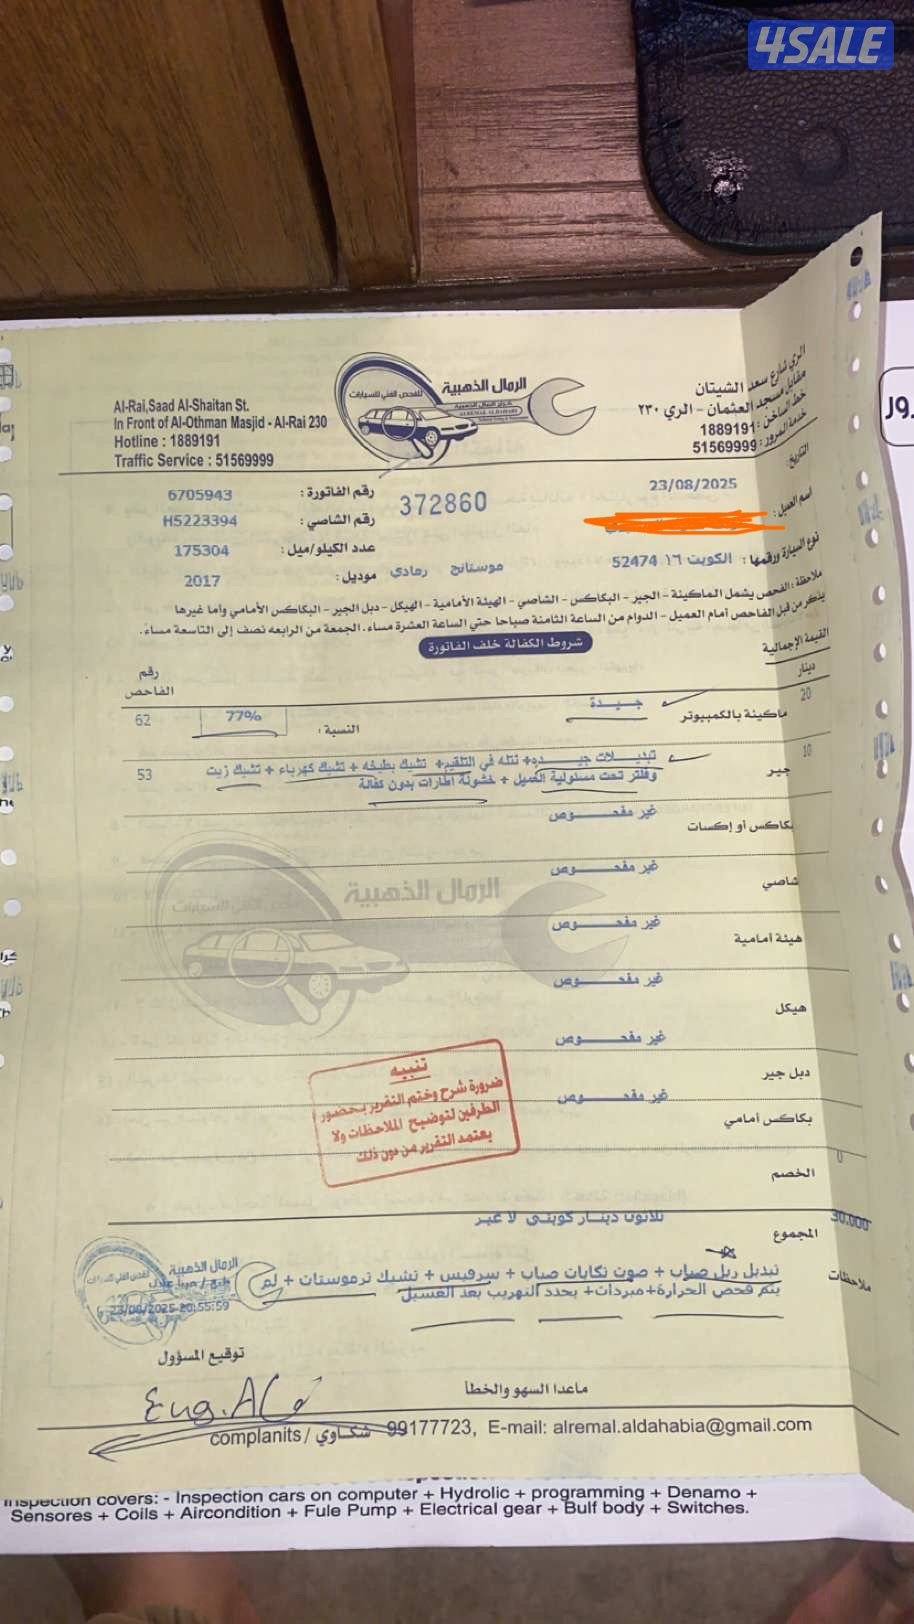 4SALE
الرمال الذهبية
للفحص الفني للسيارات
Al-Rai,Saad Al-Shaitan St.
In Front of Al-Othman Masjid - Al-Rai 230
Hotline : 1889191
Traffic Service : 51569999
الري شارع سعد الشيتان
مقابل مسجد العثمان - الري ٢٣٠
خط الساخن: 1889191
خدمة المرور: 51569999
التاريخ: 23/08/2025
372860
رقم الفاتورة: 6705943
اسم العميل:
رقم الشاصي: H5223394
نوع السيارة ورقمها: الكويت ١٦ 52474 موستانج رمادي
عدد الكيلو/ميل: 175304
موديل: 2017
ملاحظة: الفحص يشمل الماكينة - الجير - البكاكس - الشاصي - الهيئة الأمامية - الهيكل - دبل الجير - البكاكس الأمامي وأما غيرها
يذكر من قبل الفاحص أمام العميل - الدوام من الساعة الثامنة صباحا حتي الساعة العشرة مساء، الجمعة من الرابعه نصف إلى التاسعة مساء.
شروط الكفالة خلف الفاتورة
القيمة الإجمالية
دينار
رقم الفاحص
20
ماكينة بالكمبيوتر جيدة النسبة: 77% 62
10
جير تبديلات جيده+ نتله في التلقيم+ تشيك بطيخه + تشيك كهرباء + تشيك زيت 53
وفلتر تحت مسئولية العميل + خشونة اطارات بدون كفالة
بكاكس أو إكسات غير مفحوص
شاصي غير مفحوص
هيئة أمامية غير مفحوص
هيكل غير مفحوص
دبل جير غير مفحوص
بكاكس أمامي غير مفحوص
الخصم 0
المجموع ثلاثون دينار كويتي لا غير 30.000
تنبيه
ضرورة شرح وختم التقرير بحضور
الطرفين لتوضيح الملاحظات ولا
يعتمد التقرير من دون ذلك
الرمال الذهبية
الرمال الذهبية
23/08/2025 20:55:59
ملاحظات
تبديل ربل صباب + صوت تكايات صباب + سرفيس + تشيك ترموستات + لم
يتم فحص الحرارة+ مبردات+ يحدد التهريب بعد الغسيل
توقيع المسؤول
Eng.
ماعدا السهو والخطأ
complanits / شكاوي 99177723, E-mail: alremal.aldahabia@gmail.com
Inspection covers: - Inspection cars on computer + Hydrolic + programming + Denamo +
Sensores + Coils + Aircondition + Fule Pump + Electrical gear + Bulf body + Switches.